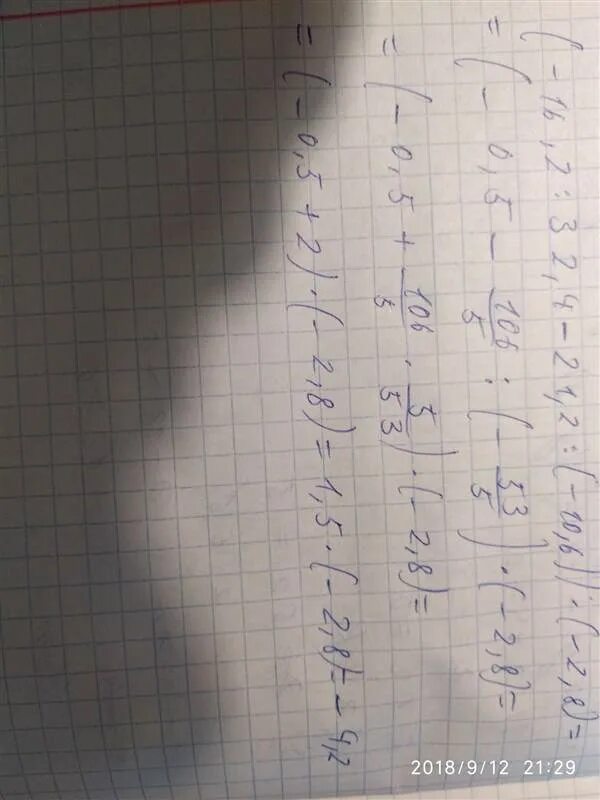 (-16,2:32,4-21,2:(-10,6))·(-2,8)=
=(-0,5-106/5:(-53/5)·(-2,8)=
=(-0,5+106/5·5/53)·(-2,8)=
=(-0,5+2)·(-2,8)=1,5·(-2,8)=-4,2
2018/9/12 21:29